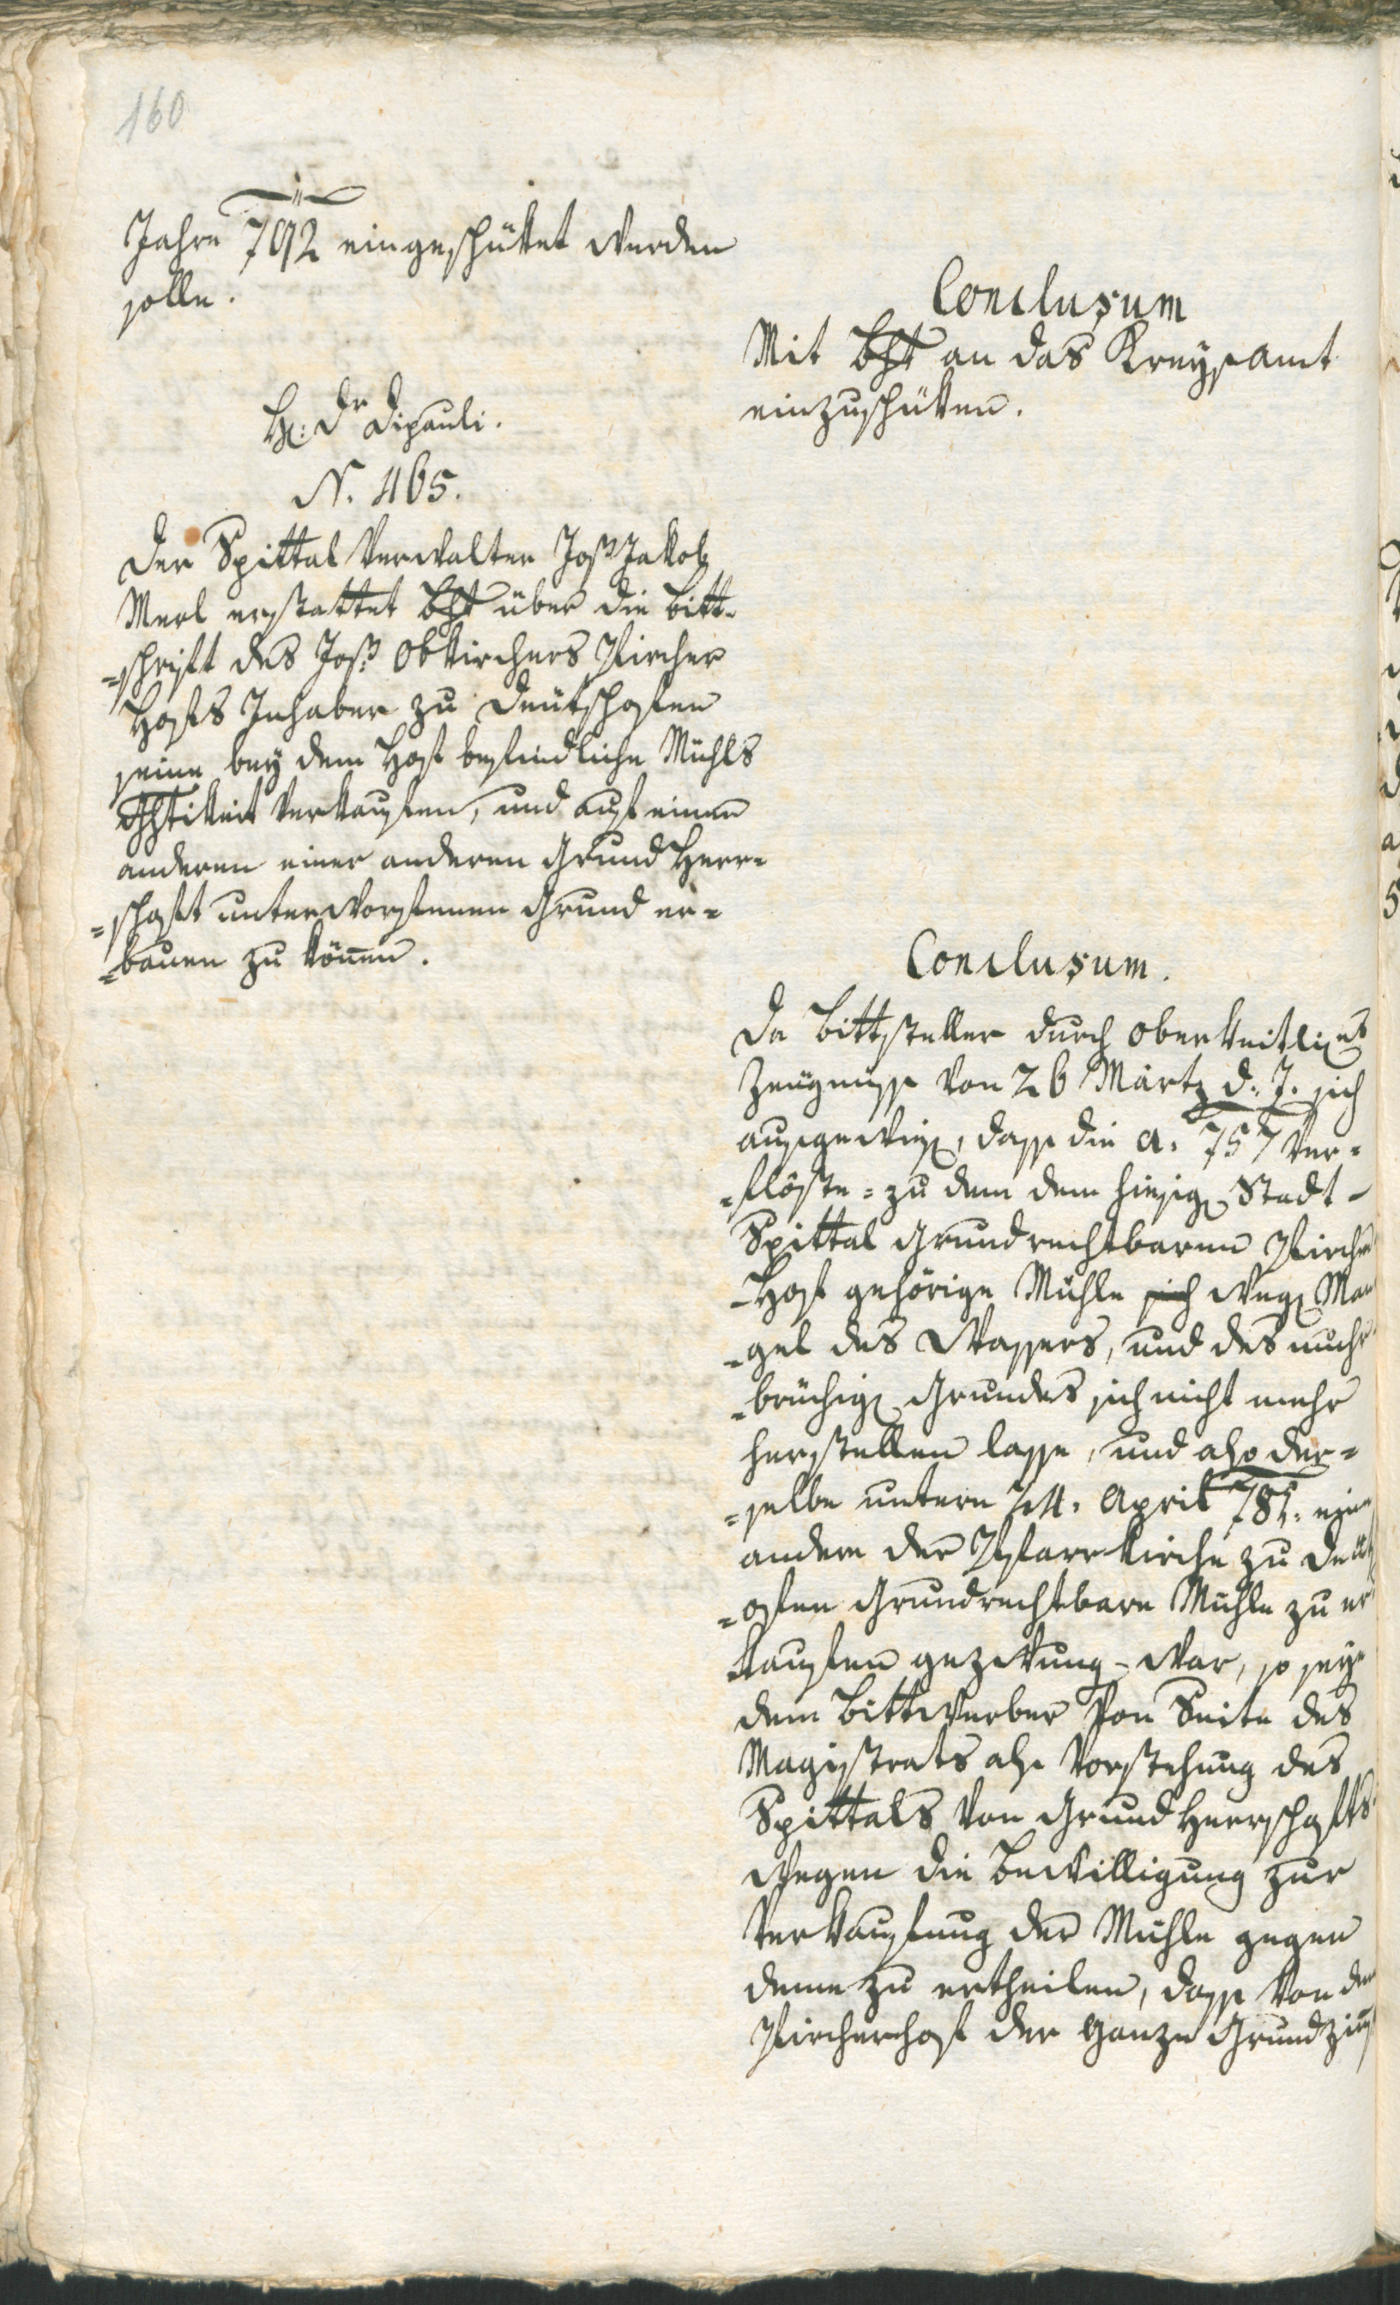 160
Jahre 792 eingeschüket werden
solle.
Conclusum
Mit Bht an das Kreysamt
einzuschüken.
H: Dr Dipauli.
N. 465.
Der Spittal Verwalter Jos Jakob
Merl erstattet Bht über die Bitt-
=schrift des Jos: Obkirchers Pircher
Hofs Inhaber zu Deutschofen
seine bey dem Hof befindliche Mühls
Ghtikeit verkaufen, und auf einen
anderen einer anderen Grund Herr=
=schaft unterworfenen Grund er=
=bauen zu können.
Conclusum.
Da Bittsteller durch oberkeitliches
Zeugnuß von 26 Märtz d: J. sich
ausgewiesen, dass die a. 757 ver=
=flöste = zu dem dem hiesigen Stadt-
Spittal Grundrechtbaren Pircher
-Hof gehörige Mühle sich wegen Man
=gel des Wassers, und des
=brüchigen Grundes sich nicht mehr
herstellen lasse, und also der=
=selbe untern 24. April 785. eine
andere der Pfarrkirche zu Deutsch
=ofen Grundrechtbare Mühle zu er
kaufen gezwungen war, so seye
dem Bittwerber von Seite des
Magistrats als Vorstehung des
Spittals von Grund Herrschafts
wegen die Bewilligung zur
Verkaufung der Mühle gegen
deme zu ertheilen, dass von dem
Pircherhof der ganze Grundzins